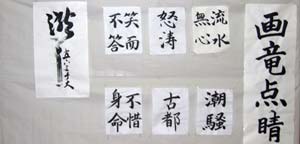 画竜点睛
流水
無心
怒涛
笑而
不答
潮騒
古都
不惜
身命